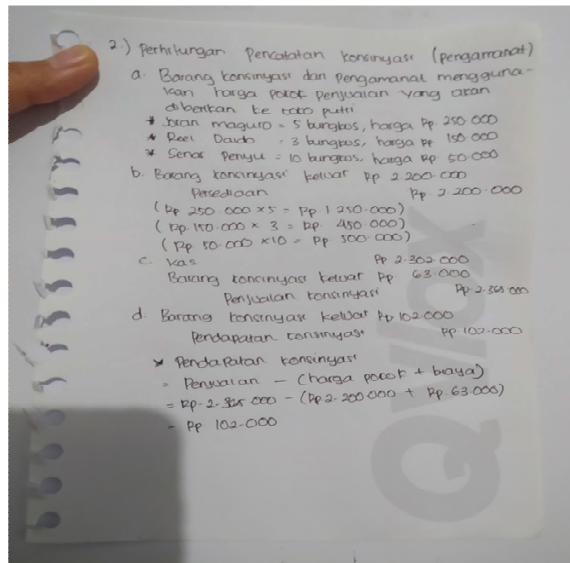 2.) Perhitungan Pencatatan Konsinyasi (pengamanat)
a. Barang konsinyasi dari pengamanat mengguna-
kan harga pokok penjualan yang akan
diberikan ke toko putri
* Joran maguro = 5 bungkos, harga Rp. 250.000
* Reel Daido = 3 bungkos, harga Rp 150.000
* Senar Penyu = 10 bungkos, harga Rp 50.000
b. Barang konsinyasi keluar Rp 2.200.000
Persediaan Rp. 2.200.000
(Rp 250.000 x 5 = Rp. 1.250.000)
(Rp. 150.000 x 3 = Rp. 450.000)
(Rp 50.000 x 10 = Rp 500.000)
c. Kas Rp 2.302.000
Barang konsinyasi keluar Rp. 63.000
Penjualan konsinyasi Rp. 2.365.000
d. Barang konsinyasi keluar Rp 102.000
Pendapatan konsinyasi Rp 102.000
* Pendapatan konsinyasi
= Penjualan - (harga pokok + biaya)
= Rp. 2.365.000 - (Rp 2.200.000 + Rp. 63.000)
= Rp 102.000